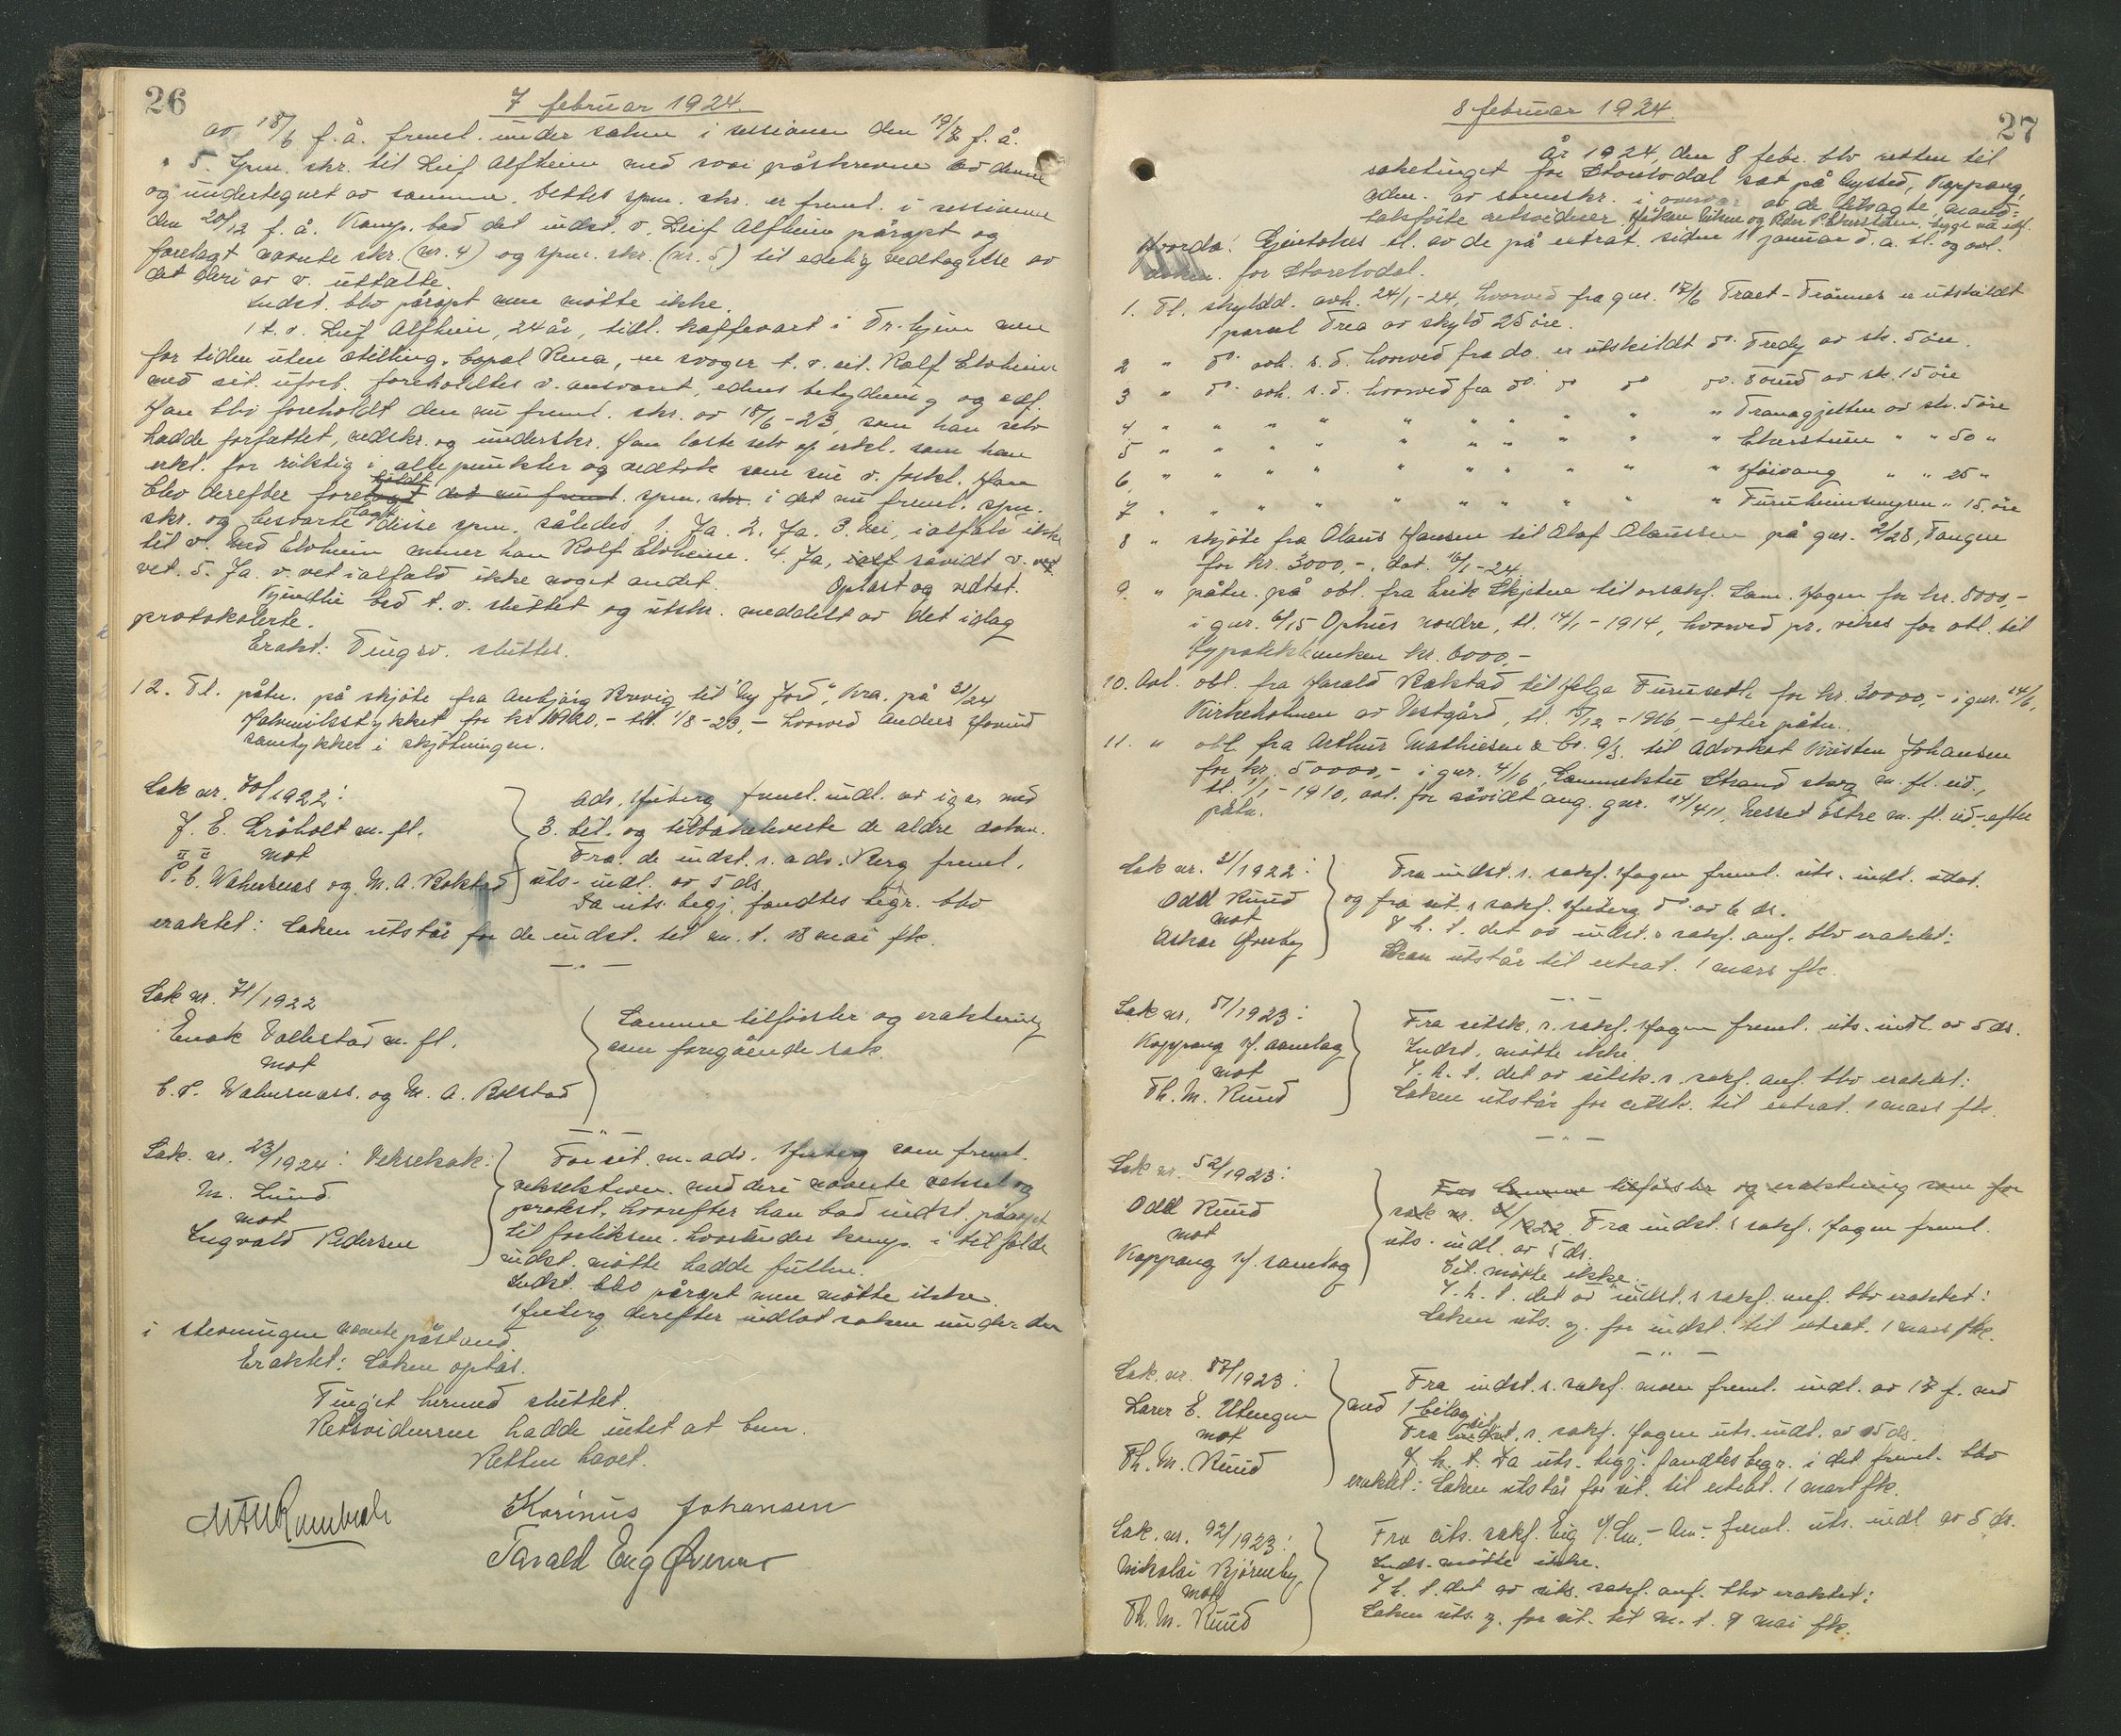 26
7 februar 1924.
av 18/6 f.å. freml. under saken i sessionen den 19/7 f.å.
5. Spm. skr. til Leif Alfheim med svar påskrevne av denne
og undertegnet av samme. Dettes spm. skr. er freml. i sessionen
den 20/12 f.å. Komp. bad det indst. v. Leif Alfheim påropt og
forelagt nævnte skr. (nr. 4) og spm. skr. (nr. 5) til edelig vedtagelse av
det deri av v. uttalte.
Indst. blev påropt men mötte ikke.
1 t. v. Leif Alfheim, 24 år, tidl. kaffevært i Tr.hjem men
for tiden uten stilling, bopæl Rena, en svoger t. v. cit. Rolf Elvheim
med cit. uforb. foreholdtes v. ansvaret, edens betydning og edf.
Han blev foreholdt den nu freml. skr. av 18/6-23, som han selv
hadde forfattet, nedskr. og underskr. Han læste selv op erkl. som han
erkl. for riktig i alle punkter og vedtok som sin v. forkl. Han
blev derefter foreholdt det nu freml. spm. skr. i det nu freml. spm.
skr. og besvarte disse spm. således 1. Ja. 2. Ja. 3. Nei, ialfald ikke
til v. Med Elvheim mener han Rolf Elvheim. 4. Ja, ialf såvidt v. vet
vet. 5. Ja. v. vet ialfald ikke noget andet. Oplæst og vedtat.
bad t. v. sluttet og utskr. meddelt av det idag
protokolerte.
Erakt: Tingsv. sluttes.
12. Tl. påtn. på skjöte fra Anbjörg Brevig til "Ny Jord", Kra. på 31/24
for kr. - tl. 1/8-23, - hvorved Anders
samtykker i skjötningen.
Sak nr. 70/1922:
J. E. Eråholt m. fl.
mot
P. C. Wahrenas og M. A. Rokstad
Adv. Huberg freml. indl. av igår med
3. bil. og tilbakeleverte de ældre dokum.
Fra de indst. s. adv. Berg freml.
uts. indl. av 5 ds.
Da uts. begj. fandtes begr. blev
eraktet: Saken utstår for de indst. til m. t. 18 mai fk.
Sak nr. 71/1922
Enok Vollestad m. fl.
mot
C. P. Wahrenas. og M. A. Rokstad
Samme tilförsler og eraktering
som foregående sak.
Sak. nr. 23/1924: Vekselsak:
M. Lund
mot
Ingvald Pedersen
For cit. m. adv. Huberg som freml.
vekselstevn. med deri nævnte veksel og
protest, hvorefter han bad indst. påropt
til forliksm. hvorunder komp. i tilfælde
indst. mötte hadde fuldm.
Indst. blev påropt men mötte ikke.
Huberg derefter indlot saken under den
i stevningen nævnte påstand.
Eraktet: Saken optas.
Tinget hermed sluttet.
Retsvidnerne hadde intet at bem.
Retten hævet.
Karinus Johansen
Tarald Eng Øvernes
27
8 februar 1924.
År 1924, den 8 febr. blev retten til
saketinget for Storelvdal sat på Lyssted, Koppang,
adm. av sorenskr. i overvær av de betragte mand-
talsförte retsvidner Håken
Hvorda: Ejentokes tl. av de på extrat. siden 1 januar d. a. tl. og avl.
dokm. for Storelvdal.
1. Tl. skyldd. avh. 24/1-24, hvorved fra gnr. 17/6 Træet-Trönnes er utskildt
1 parcel Trea av skyld 25 öre.
2 " do. avh. s. d. hvorved fra do. er utskildt do. Tredy av sk. 5 öre.
3 " do. avh. s. d. hvorved fra do. do do do. Sund av sk. 15 öre
4 " " " " " " " " " " Tranagjetten av sk. 5 öre
5 " " " " " " " " " " Ekerstuen " " 50 "
6 " " " " " " " " " " Höivang " " 25 "
7 " " " " " " " " " " Furuheimsmyren " 15 öre
8 " skjöte fra Olaus Hansen til Olaf Olaussen på gnr. 2/28, Tangen
for kr. 3000,-, dat. 16/1-24.
9. " påtn. på obl. fra Erik Skjetne til orsakf. Sam. Hagen for kr. 8000,-
i gnr. 6/15 Ophus nordre, tl. 14/1-1914, hvorved pr. vikes for obl. til
Hypotekbanken kr. 6000,-
10. Avl. obl. fra Harald Rokstad til Helge Furuseth for kr. 30000,- i gnr. 24/6,
Kirkeholmen av Vestgård, tl. 5/12-1916, - efter påtn.
11. " obl. fra Arthur Mathiesen & Co. A/S. til Advokat Kristen Johansen
for kr. 50000,- i gnr. 4/16, Strand m. fl. eid.,
tl. 1/1-1910, avl. for såvidt ang. gnr. 24/411, Nesset östre m. fl. eid.-efter
påtn.
Sak nr. 21/1922:
Odd Ruud
mot
Askar Översby
Fra indst. s. sakf. Hagen freml. uts. indl. udat.
og fra cit. s sakf. Huberg do. av 6 ds.
I h. t. det av indst. s sakf. anf. blev eraktet:
Saken utstår til extrat. 1 mars fk.
Sak nr. 51/1923:
Koppang H. samlag
mot
Th. M. Ruud
Fra citsk. s. sakf. Hagen freml. uts. indl. av 5 ds.
Indst. mötte ikke.
I. h. t. det av citsk. s. sakf. anf. blev eraktet:
Saken utstår for citsk. til extrat. 1 mars fk.
Sak nr. 52/1923:
Odd Ruud
mot
Koppang H. samlag
Fra Samme tilförsler og eraktering som for
sak nr. 21/1922. Fra indst. s sakf. Hagen freml.
uts. indl. av 5 ds.
Cit. mötte ikke.
I. h. t. det av indst. s sakf. anf. blev eraktet:
Saken uts. g. for indst. til extrat. 1 mars fk.
Sak. nr. 87/1923:
Lærer E. Utengen
mot
Th. M. Ruud
Fra indst. s. sakf. Moen freml. indl. av 17 f. md
med 1 bilag
Fra indst. cit. s. sakf. Hagen uts. indl. av 5 ds.
I. h. t. Da uts. begj. fandtes begr. i det freml. blev
eraktet: Saken utstår for cit. til extrat. 1 mars fk.
Sak. nr. 92/1923:
Nikolai Bjørneby
mot
Th. M. Ruud
Fra cits. sakf. Eig freml. uts. indl av 5 ds.
Inds. mötte ikke.
I h. t. det av cits. sakf. anf. blev eraktet:
Saken uts. g. for cit. til m. t. 9 mai fk.